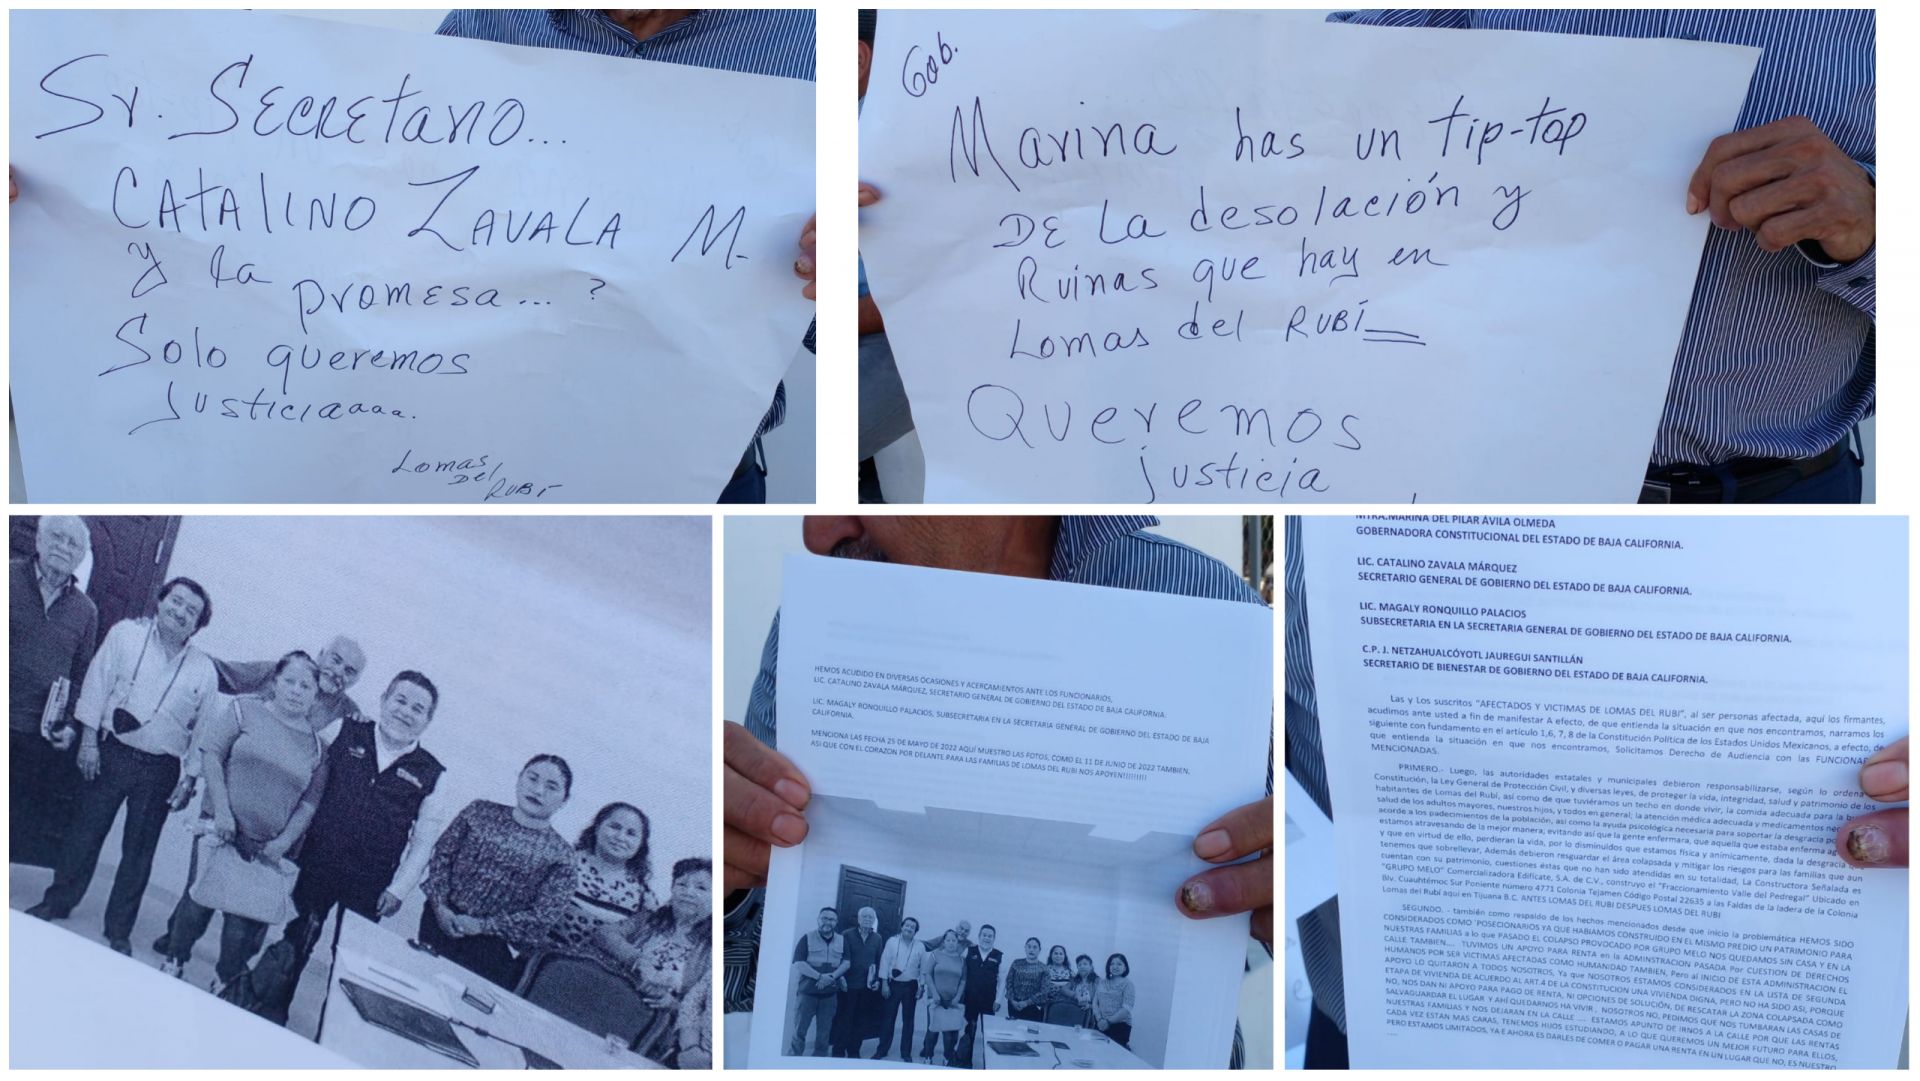 Sr. SECRETARIO...
CATALINO ZAVALA M.
y la promesa... ?
Solo queremos
justiciaaaa.
Lomas
Del
RUBÍ
Gob.
Marina has un tip-top
DE La desolación y
Ruinas que hay en
Lomas del RUBÍ
Queremos
justicia
HEMOS ACUDIDO EN DIVERSAS OCASIONES Y ACERCAMIENTOS ANTE LOS FUNCIONARIOS,
LIC. CATALINO ZAVALA MÁRQUEZ, SECRETARIO GENERAL DE GOBIERNO DEL ESTADO DE BAJA CALIFORNIA.
LIC. MAGALY RONQUILLO PALACIOS, SUBSECRETARIA EN LA SECRETARIA GENERAL DE GOBIERNO DEL ESTADO DE BAJA
CALIFORNIA.
MENCIONA LAS FECHA 25 DE MAYO DE 2022 AQUÍ MUESTRO LAS FOTOS, COMO EL 11 DE JUNIO DE 2022 TAMBIEN,
ASI QUE CON EL CORAZON POR DELANTE PARA LAS FAMILIAS DE LOMAS DEL RUBI NOS APOYEN!!!!!!!!!
MTRA.MARINA DEL PILAR ÁVILA OLMEDA
GOBERNADORA CONSTITUCIONAL DEL ESTADO DE BAJA CALIFORNIA.
LIC. CATALINO ZAVALA MÁRQUEZ
SECRETARIO GENERAL DE GOBIERNO DEL ESTADO DE BAJA CALIFORNIA.
LIC. MAGALY RONQUILLO PALACIOS
SUBSECRETARIA EN LA SECRETARIA GENERAL DE GOBIERNO DEL ESTADO DE BAJA CALIFORNIA.
C.P. J. NETZAHUALCÓYOTL JAUREGUI SANTILLÁN
SECRETARIO DE BIENESTAR DE GOBIERNO DEL ESTADO DE BAJA CALIFORNIA.
Las y Los suscritos "AFECTADOS Y VICTIMAS DE LOMAS DEL RUBI", al ser personas afectada, aquí los firmantes,
acudimos ante usted a fin de manifestar A efecto, de que entienda la situación en que nos encontramos, narramos los
siguiente con fundamento en el artículo 1,6, 7, 8 de la Constitución Política de los Estados Unidos Mexicanos, a efecto, de
que entienda la situación en que nos encontramos, Solicitamos Derecho de Audiencia con las
MENCIONADAS.
PRIMERO.- Luego, las autoridades estatales y municipales debieron responsabilizarse, según lo
Constitución, la Ley General de Protección Civil, y diversas leyes, de proteger la vida, integridad, salud y patrimonio de los
habitantes de Lomas del Rubí, así como de que tuviéramos un techo en donde vivir, la comida adecuada para la
salud de los adultos mayores, nuestros hijos, y todos en general; la atención médica adecuada y medicamentos
acorde a los padecimientos de la población, así como la ayuda psicológica necesaria para soportar la desgracia
estamos atravesando de la mejor manera, evitando así que la gente enfermara, que aquella que estaba enferma
y que en virtud de ello, perdieran la vida, por lo disminuidos que estamos física y anímicamente, dada la desgracia
tenemos que sobrellevar, Además debieron resguardar el área colapsada y mitigar los riesgos para las familias que aun
cuentan con su patrimonio, cuestiones éstas que no han sido atendidas en su totalidad, La Constructora Señalada es
"GRUPO MELO" Comercializadora Edificate, S.A. de C.V., construyo el "Fraccionamiento Valle del Pedregal" Ubicado en
Blv. Cuauhtémoc Sur Poniente número 4771 Colonia Tejamen Código Postal 22635 a las Faldas de la ladera de la Colonia
Lomas del Rubí aquí en Tijuana B.C. ANTES LOMAS DEL RUBI DESPUES LOMAS DEL RUBI
SEGUNDO. - también como respaldo de los hechos mencionados desde que inicio la problemática HEMOS SIDO
CONSIDERADOS COMO 'POSECIONARIOS YA QUE HABIAMOS CONSTRUIDO EN EL MISMO PREDIO UN PATRIMONIO PARA
NUESTRAS FAMILIAS a lo que PASADO EL COLAPSO PROVOCADO POR GRUPO MELO NOS QUEDAMOS SIN CASA Y EN LA
CALLE TAMBIEN.... TUVIMOS UN APOYO PARA RENTA en la ADMINISTRACION PASADA Por CUESTION DE DERECHOS
HUMANOS POR SER VICTIMAS AFECTADAS COMO HUMANIDAD TAMBIEN, Pero al INICIO DE ESTA ADMINISTRACION EL
APOYO LO QUITARON A TODOS NOSOTROS, Ya que NOSOTROS ESTAMOS CONSIDERADOS EN LA LISTA DE SEGUNDA
ETAPA DE VIVIENDA DE ACUERDO AL ART.4 DE LA CONSTITUCION UNA VIVIENDA DIGNA, PERO NO HA SIDO ASI, PORQUE
NO, NOS DAN NI APOYO PARA PAGO DE RENTA, NI OPCIONES DE SOLUCIÓN, DE RESCATAR LA ZONA COLAPSADA COMO
SALVAGUARDAR EL LUGAR Y AHÍ QUEDARNOS HA VIVIR , NOSOTROS NO, PEDIMOS QUE NOS TUMBARAN LAS CASAS DE
NUESTRAS FAMILIAS Y NOS DEJARAN EN LA CALLE .... ESTAMOS APUNTO DE IRNOS A LA CALLE POR QUE LAS RENTAS
CADA VEZ ESTAN MAS CARAS, TENEMOS HIJOS ESTUDIANDO, A LO QUE QUEREMOS UN MEJOR FUTURO PARA ELLOS,
PERO ESTAMOS LIMITADOS, YA E AHORA ES DARLES DE COMER O PAGAR UNA RENTA EN UN LUGAR QUE NO, ES NUESTRO
.....